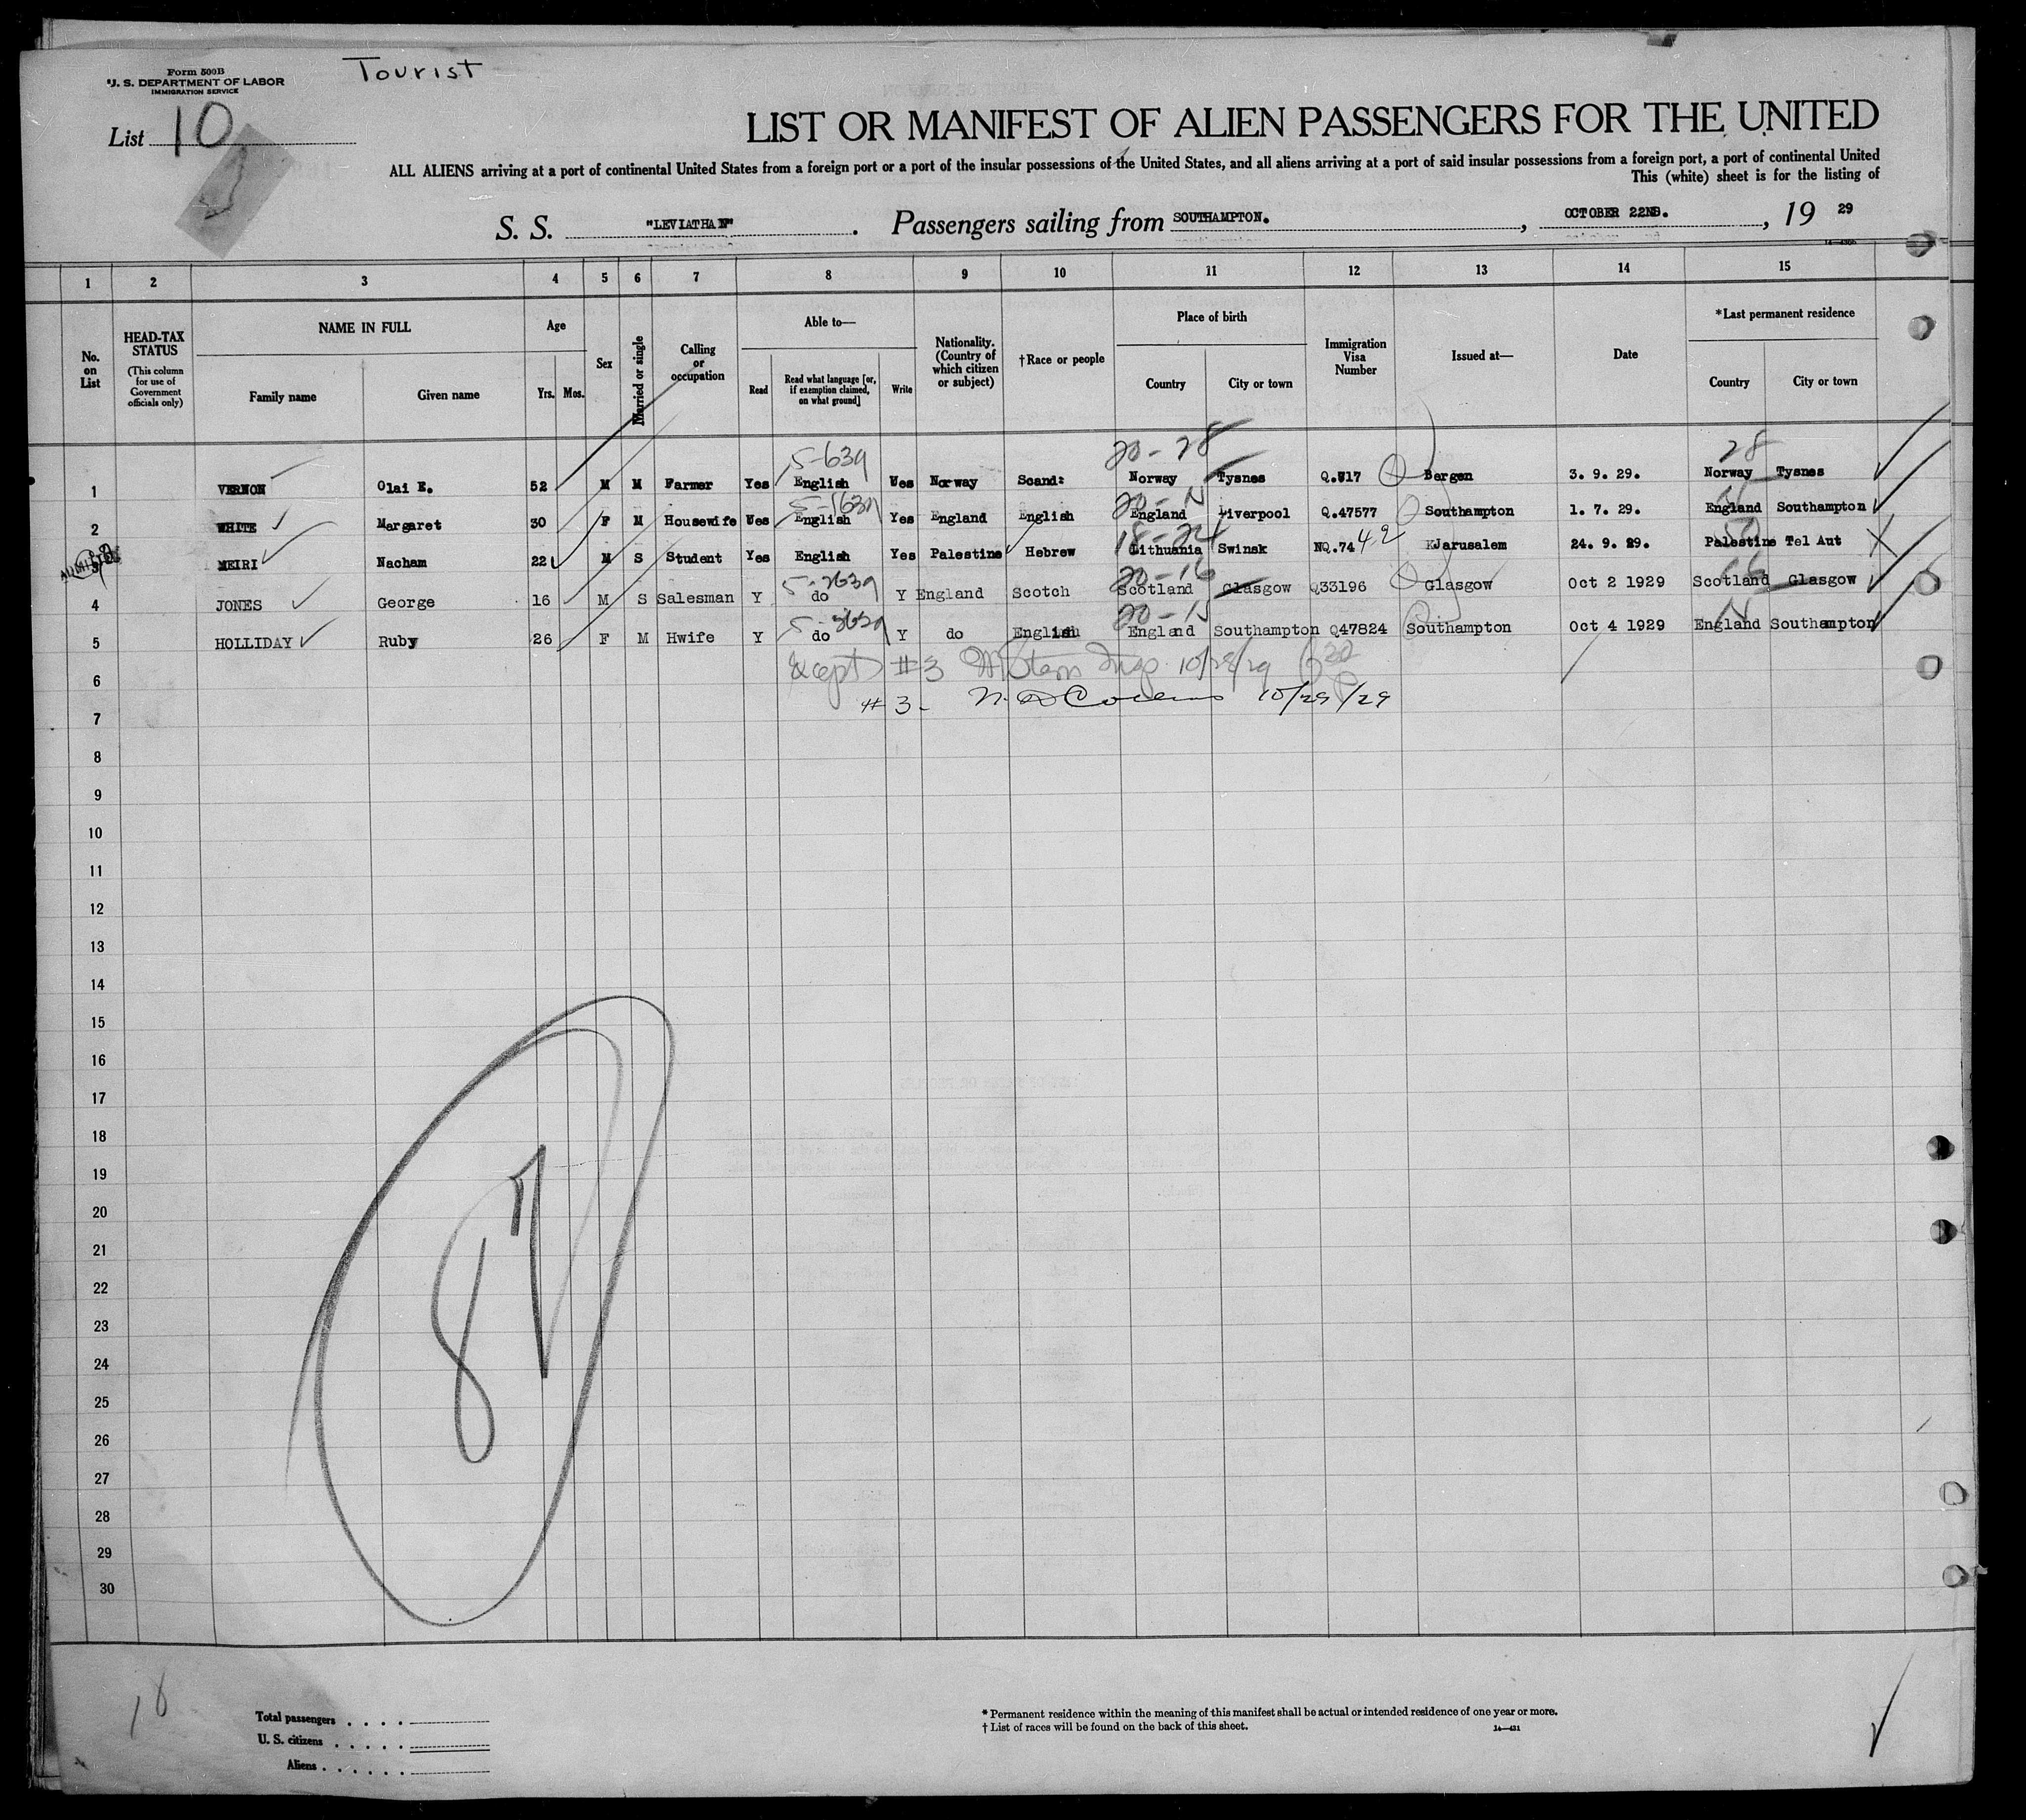 Form 500B
U. S. DEPARTMENT OF LABOR
IMMIGRATION SERVICE
Tourist
List 10
LIST OR MANIFEST OF ALIEN PASSENGERS FOR THE UNITED
ALL ALIENS arriving at a port of continental United States from a foreign port or a port of the insular possessions of the United States, and all aliens arriving at a port of said insular possessions from a foreign port, a port of continental United
This (white) sheet is for the listing of
S. S. "LEVIATHAN". Passengers sailing from SOUTHAMPTON. , OCTOBER 22ND. , 19 29
1 2 3 4 5 6 7 8 9 10 11 12 13 14 15
No. on List
HEAD-TAX STATUS
(This column for use of Government officials only)
NAME IN FULL
Family name
Given name
Age
Yrs. Mos.
Sex
Married or single
Calling or occupation
Able to—
Read
Read what language [or, if exemption claimed, on what ground]
Write
Nationality. (Country of which citizen or subject)
†Race or people
Place of birth
Country
City or town
Immigration Visa Number
Issued at—
Date
*Last permanent residence
Country
City or town
5-639 20-28 28
1 VERNON Olai E. 52 M M Farmer Yes English Yes Norway Scand: Norway Tysnes Q.W17 Bergen 3. 9. 29. Norway Tysnes
2 WHITE Margaret 30 F M Housewife Yes English Yes England English England Liverpool Q.47577 Southampton 1. 7. 29. England Southampton
3 MEIRI Nacham 22 M S Student Yes English Yes Palestine Hebrew Lithuania Swinsk NQ.7442 KJarusalem 24. 9. 29. Palestine Tel Aut
20-16
4 JONES George 16 M S Salesman Y do Y England Scotch Scotland Glasgow Q33196 Glasgow Oct 2 1929 Scotland Glasgow
5 HOLLIDAY Ruby 26 F M Hwife Y do Y do English England Southampton Q47824 Southampton Oct 4 1929 England Southampton
6 #3 10/28/29
7 #3- 10/29/29
8
9
10
11
12
13
14
15
16
17
18
19
20
21
22
23
24
25
26
27
28
29
30
87
16
Total passengers . . . .
U. S. citizens . . . . .
Aliens . . . . . .
* Permanent residence within the meaning of this manifest shall be actual or intended residence of one year or more.
† List of races will be found on the back of this sheet.
14—431